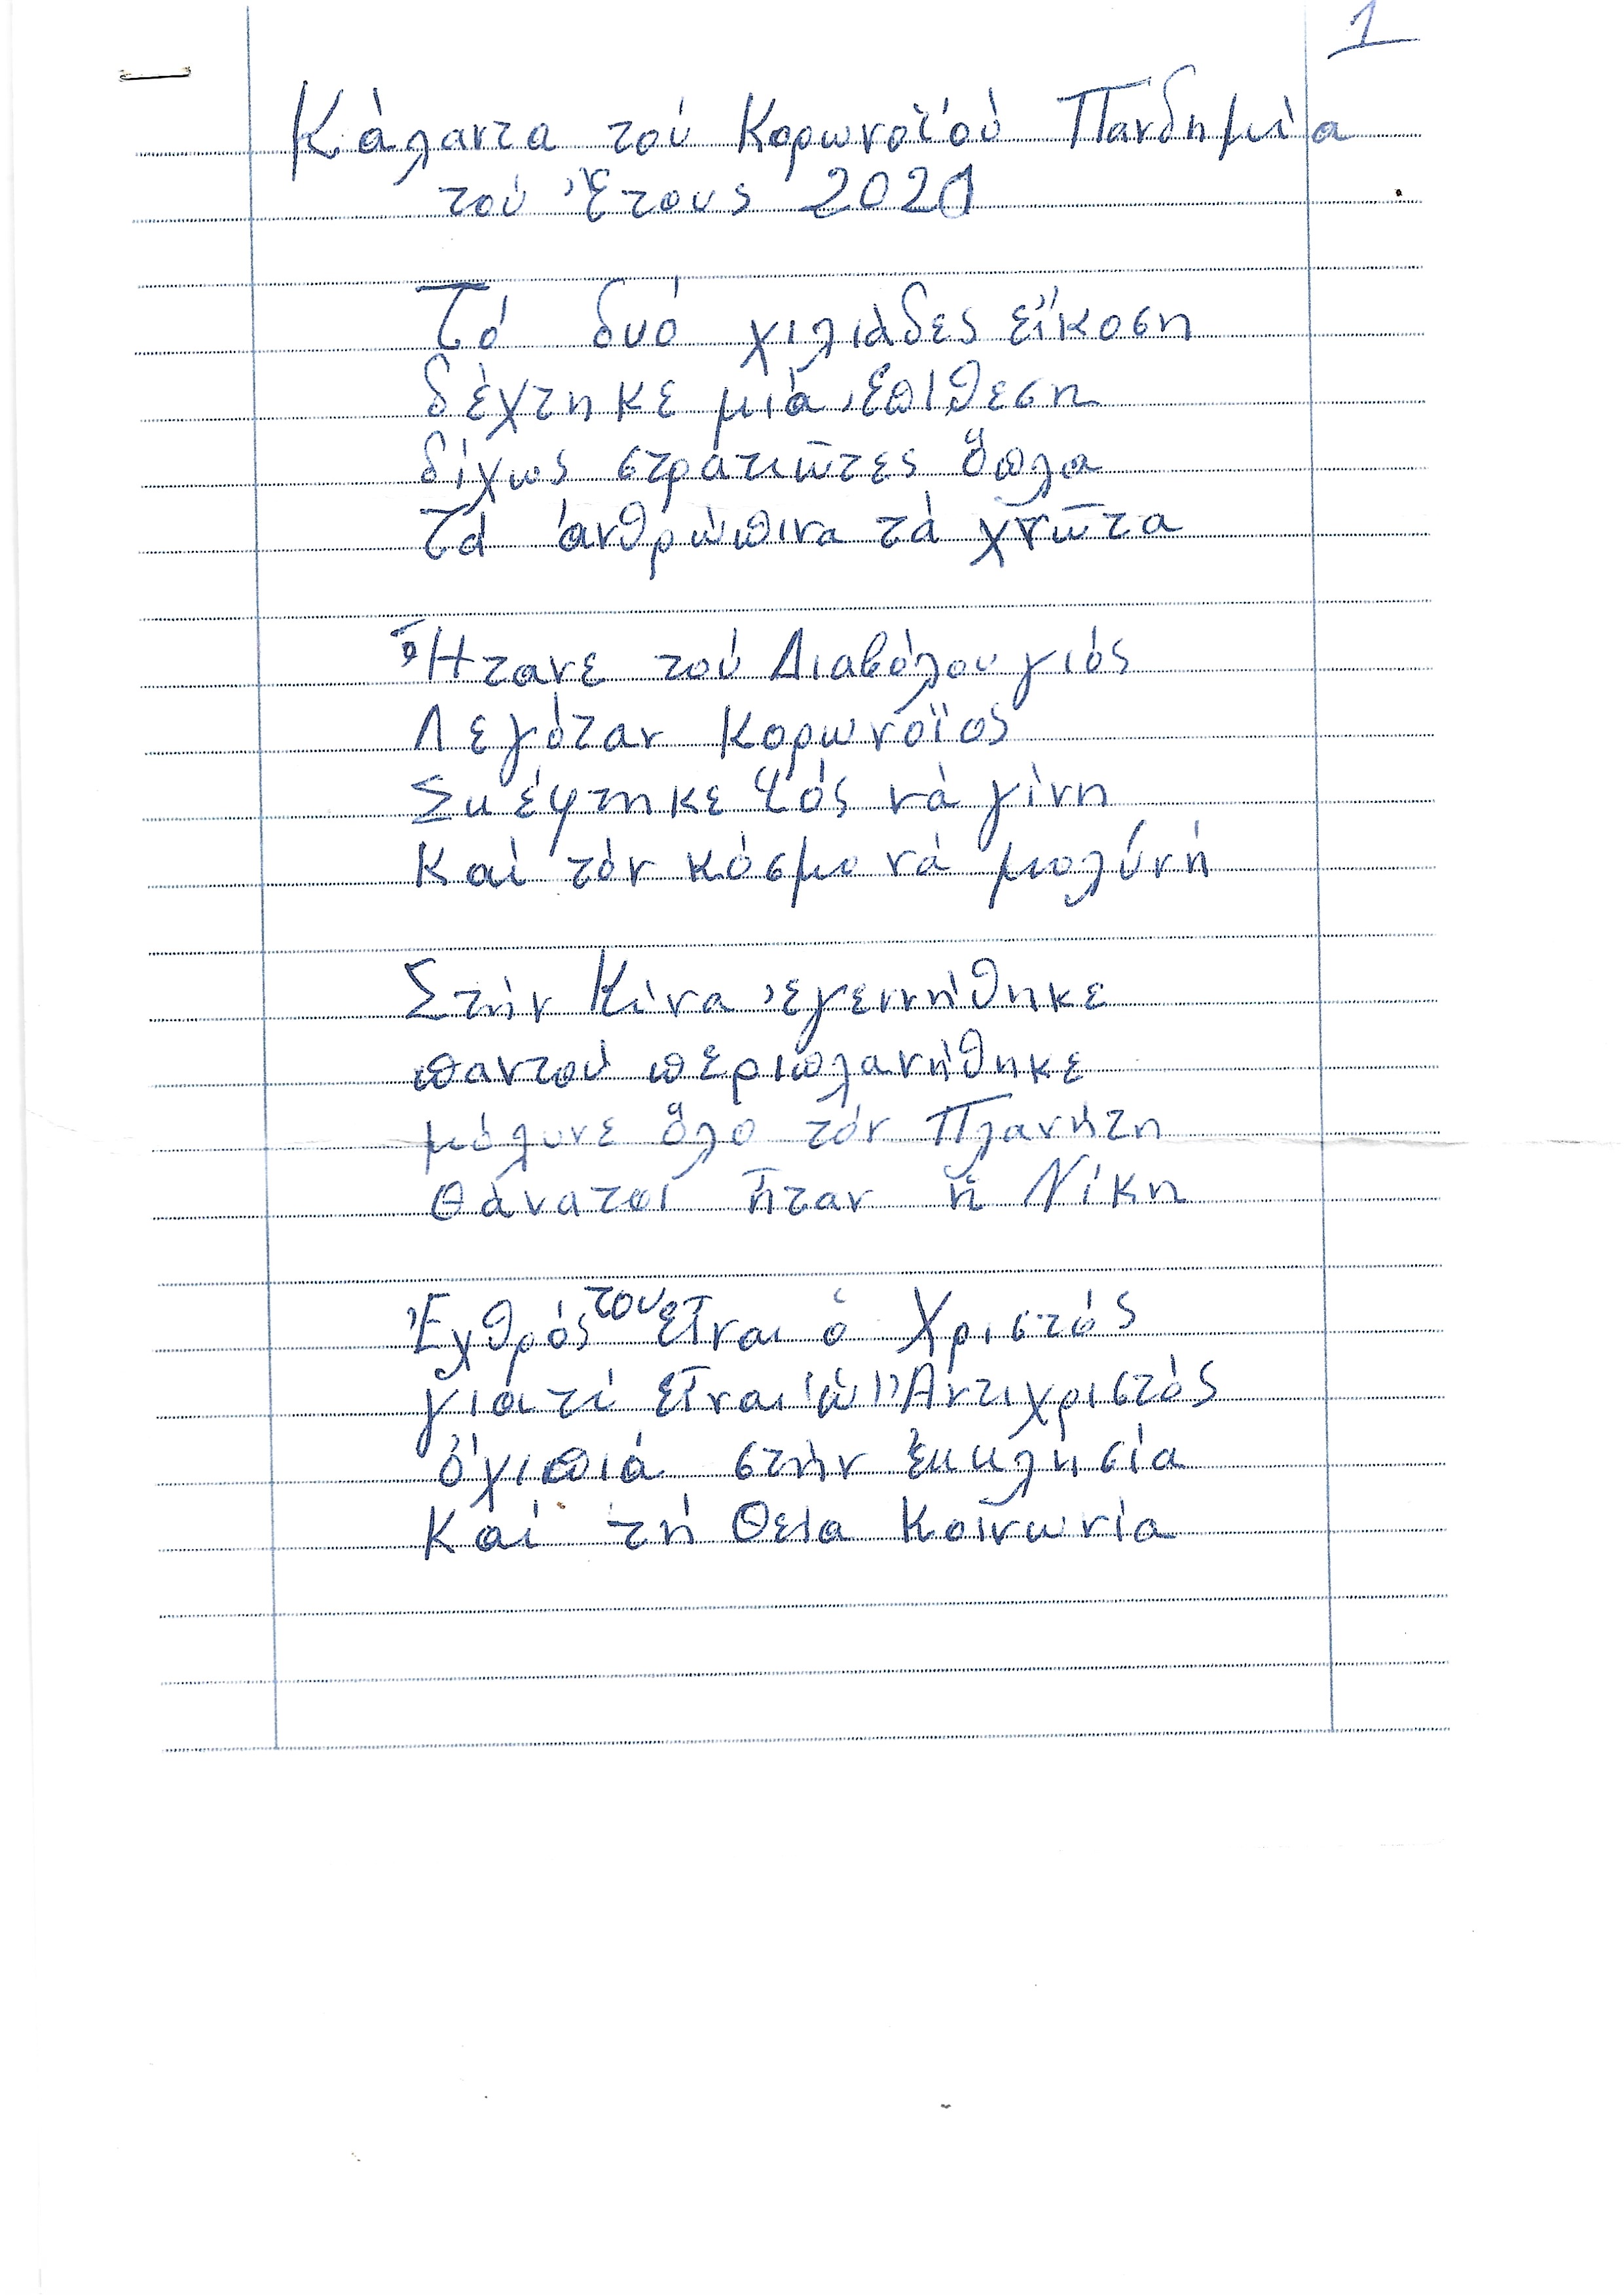 1
Κάλαντα τού Κορωνοϊού Πανδημία
τού Ἔτους 2020
Τό δυό χιλιάδες εἴκοση
δέχτηκε μιά ἐπίθεση
δίχως στρατιῶτες ὅπλα
τά ἀνθρώπινα τά χνῶτα
Ἤτανε τού Διαβόλου γιός
Λεγόταν Κορωνοϊός
Σκέφτηκε ἰός νά γίνη
Καί τόν κόσμο νά μολύνή
Στήν Κίνα ἐγεννήθηκε
παντού περιπλανήθηκε
μόλυνε ὅλο τόν Πλανήτη
Θάνατοι ἦταν ἡ Νίκη
Ἐχθρός του εἶναι ὁ Χριστός
γιατί εἶναι ὡ Ἀντιχριστός
ὄχι πιά στήν ἐκκλησία
Καί τή Θεία Κοινωνία